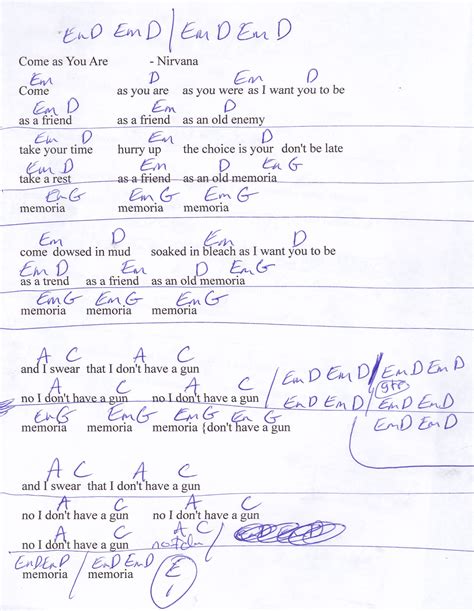 Em D Em D / Em D Em D
Come as You Are - Nirvana
Em D Em D
Come as you are as you were as I want you to be
Em D Em D
as a friend as a friend as an old enemy
Em D Em D
take your time hurry up the choice is your don't be late
Em D Em D Em G
take a rest as a friend as an old memoria
Em G Em G Em G
memoria memoria memoria
Em D Em D
come dowsed in mud soaked in bleach as I want you to be
Em D Em D Em G
as a trend as a friend as an old memoria
Em G Em G Em G
memoria memoria memoria
A C
and I swear that I don't have a gun
A C A C / Em D Em D / Em D Em D
gtr
no I don't have a gun no I don't have a gun / Em D Em D / Em D Em D
Em G Em G Em G Em G Em D Em D
memoria memoria memoria {don't have a gun
A C
and I swear that I don't have a gun
A C A C
no I don't have a gun no I don't have a gun
A C A C
no I don't have a gun /
Em D Em D / Em D Em D E
memoria memoria 1